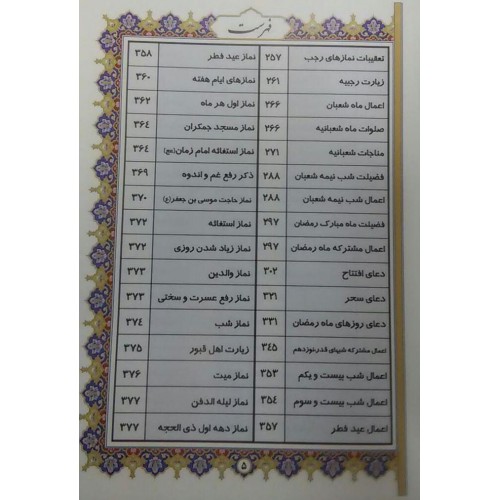 فهرست
تعقیبات نمازهای رجب ۲۵۷
زیارت رجبیه ۲۶۱
اعمال ماه شعبان ۲۶۶
صلوات ماه شعبانیه ۲۶۶
مناجات شعبانیه ۲۷۱
فضیلت شب نیمه شعبان ۲۸۸
اعمال شب نیمه شعبان ۲۸۸
فضیلت ماه مبارک رمضان ۲۹۷
اعمال مشترکه ماه رمضان ۲۹۷
دعای افتتاح ۳۰۲
دعای سحر ۳۲۱
دعای روزهای ماه رمضان ۳۳۱
اعمال مشترکه شبهای قدر_نوزدهم ۳۴۵
اعمال شب بیست و یکم ۳۵۳
اعمال شب بیست و سوم ۳۵۴
اعمال عید فطر ۳۵۷
نماز عید فطر ۳۵۸
نمازهای ایام هفته ۳۶۰
نماز اول هر ماه ۳۶۲
نماز مسجد جمکران ۳۶۴
نماز استغاثه امام زمان(عج) ۳۶۴
ذکر رفع غم و اندوه ۳۶۹
نماز حاجت موسی بن جعفر(ع) ۳۷۰
نماز استغاثه ۳۷۲
نماز زیاد شدن روزی ۳۷۲
نماز والدین ۳۷۳
نماز رفع عسرت و سختی ۳۷۳
نماز شب ۳۷۴
زیارت اهل قبور ۳۷۵
نماز میت ۳۷۶
نماز لیله الدفن ۳۷۷
نماز دهه اول ذی الحجه ۳۷۷
۵